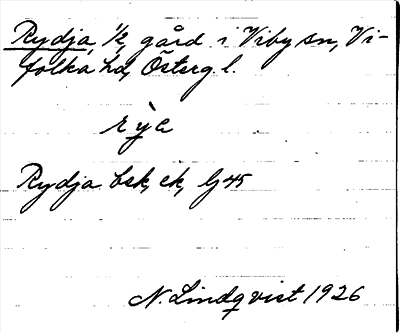 Rydja, 1/2, gård i Viby sn, Vi-
folka hd, Österg. l.
rỳa
Rydja bsk, ek, lj 45
N. Lindqvist 1926